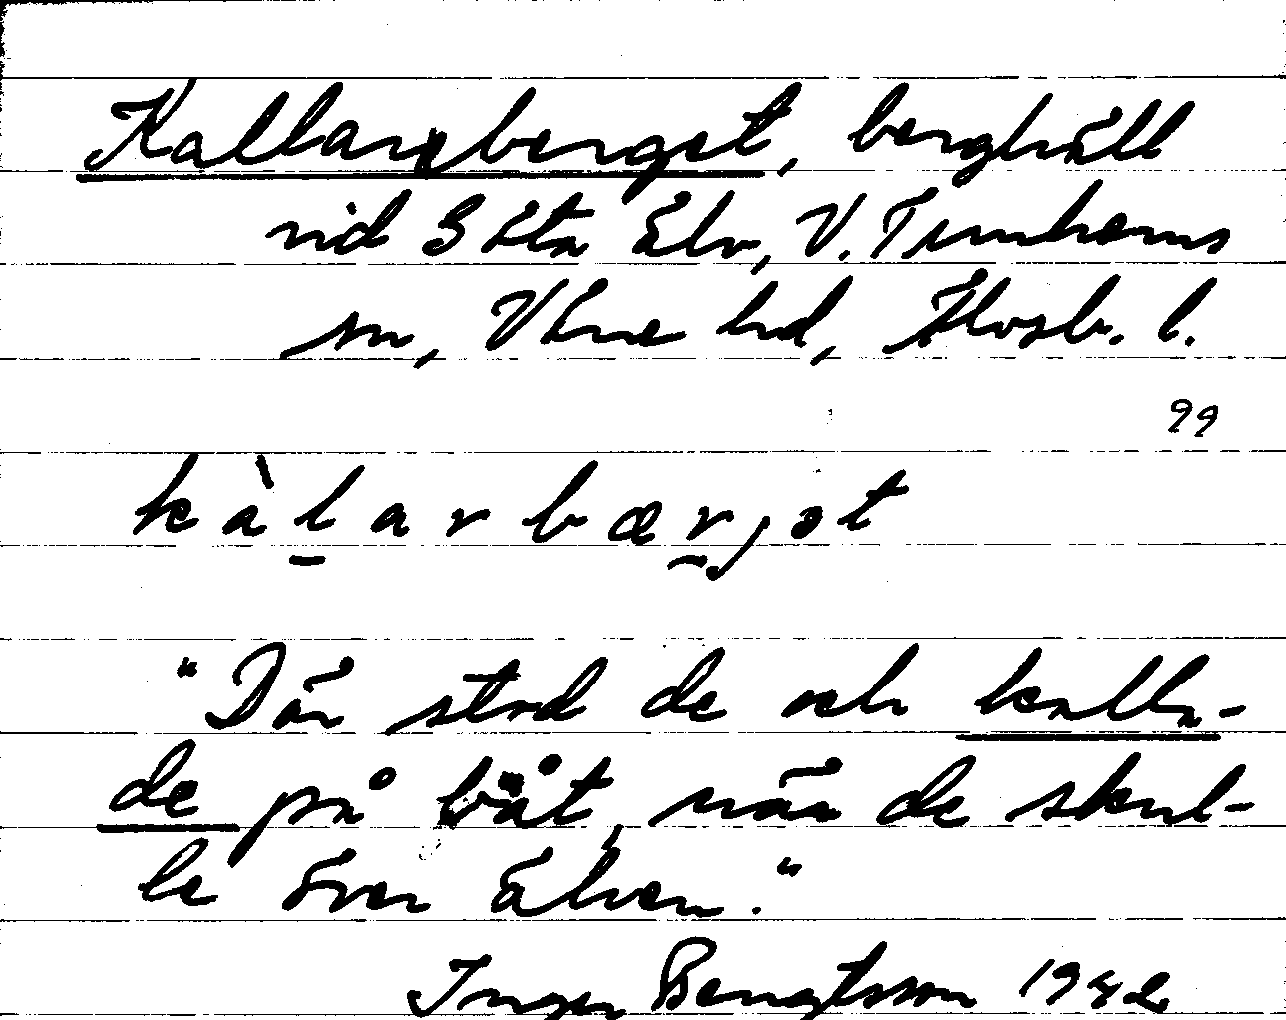 Kallareberget, berghäll
vid Göta älv, V. Tunhems
sn, Väne hd, Älvsb. l.
99
kàlarbærjət
"Där stod de och kalla-
de på båt, när de skul-
le över älven."
Inger Bengtsson 1942